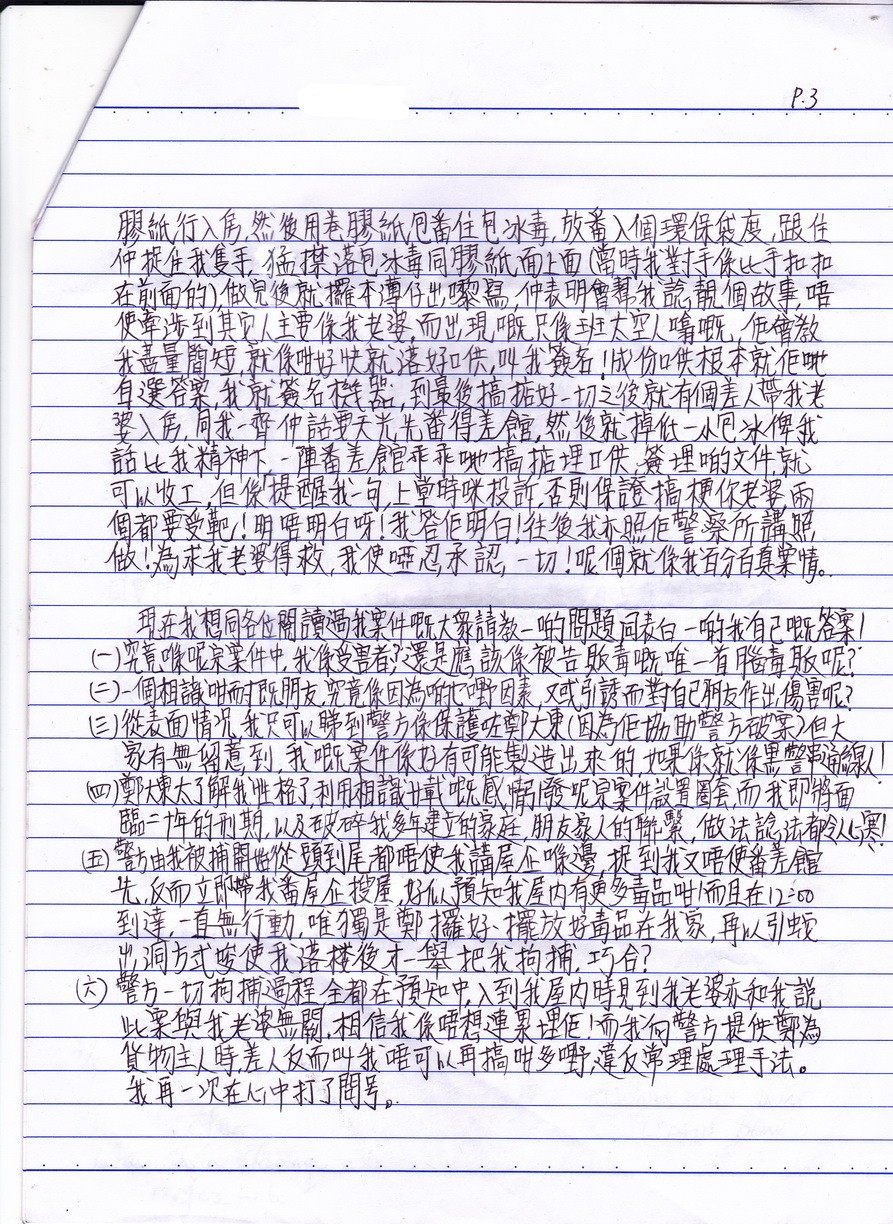 P.3
膠紙行入房,然後用卷膠紙包番住包冰毒,放番入個環保袋度,跟住
仲捉住我隻手,猛㩒落包冰毒同膠紙面上面(當時我對手係比手扣扣
在前面的),做完後就攞本簿仔出嚟寫,仲表明會幫我諗靚個故事,唔
使牽涉到其它人主要係我老婆,而出現嘅只係班太空人嗡嘅,佢會教
我盡量簡短,就係咁好快就落好口供,叫我簽名!成份口供根本就佢哋
自選答案,我就簽名機器,到最後搞掂好一切之後就有個差人帶我老
婆入房,同我一齊仲話要天光先番得差館,然後就掉低一小包冰俾我
話比我精神下,一陣番差館乖乖哋搞掂埋口供,簽埋啲文件,就
可以收工,但係「提醒我一句,上堂時咪投訴,否則保證搞梗你老婆,兩
個都要受靶!明唔明白呀!我答佢明白!往後我亦照佢警察所講照
做!為求我老婆得救,我使啞忍承認,一切!呢個就係我百分百真案情。
現在我想同各位閱讀過我案件嘅大衆請教一啲問題同表白一啲我自己嘅答案!
(一)究竟喺呢宗案件中,我係受害者?還是應該係被告販毒嘅唯一首腦毒販呢?
(二)一個相識咁耐既朋友,究竟係因為啲乜嘢因素,又或引誘而對自己朋友作出傷害呢?
(三)從表面情況,我只可以睇到警方係保護咗鄭大東(因為佢協助警方破案)但大
家有無留意到,我嘅案件係好有可能製造出來的,如果係就係黑警串通線人!
(四)鄭大東太了解我性格了,利用相識廿載嘅感情引發呢宗案件設置圈套,而我即將面
臨二十年的刑期,以及破碎我多年建立的家庭,朋友家人的聯繫,做法諗法都令人心寒!
(五)警方由我被捕開始從頭到尾都唔使我講屋企喺邊,捉到我又唔使番差館
先,反而立即帶我番屋企搜屋,好似預知我屋內有更多毒品咁!而且在12:00
到達,一直無行動,唯獨是鄭攞好、擺放好毒品在我家,再以引蛇
出洞方式唆使我落樓後才一舉把我拘捕,巧合?
(六)警方一切拘捕過程,全都在預知中,入到我屋內時見到我老婆亦和我說
此案與我老婆無關,相信我係唔想連累埋佢!而我向警方提供鄭為
貨物主人時,差人反而叫我唔可以再搞咁多嘢,違反常理處理手法。
我再一次在心中打了問号。